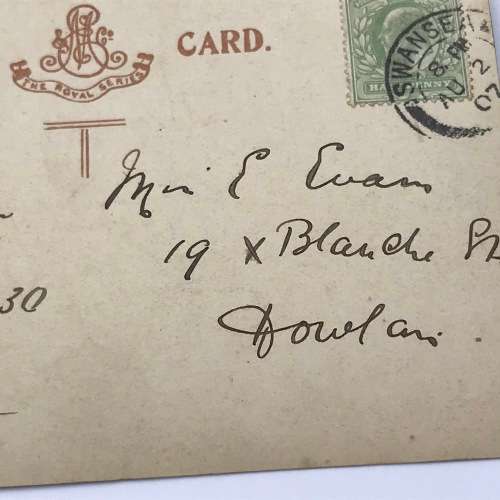 CARD.
THE ROYAL SERIES
HALFPENNY
SWANSEA
8 PM
AU 2
07
Miss E Evans
19 x Blanche St
Dowlais
30